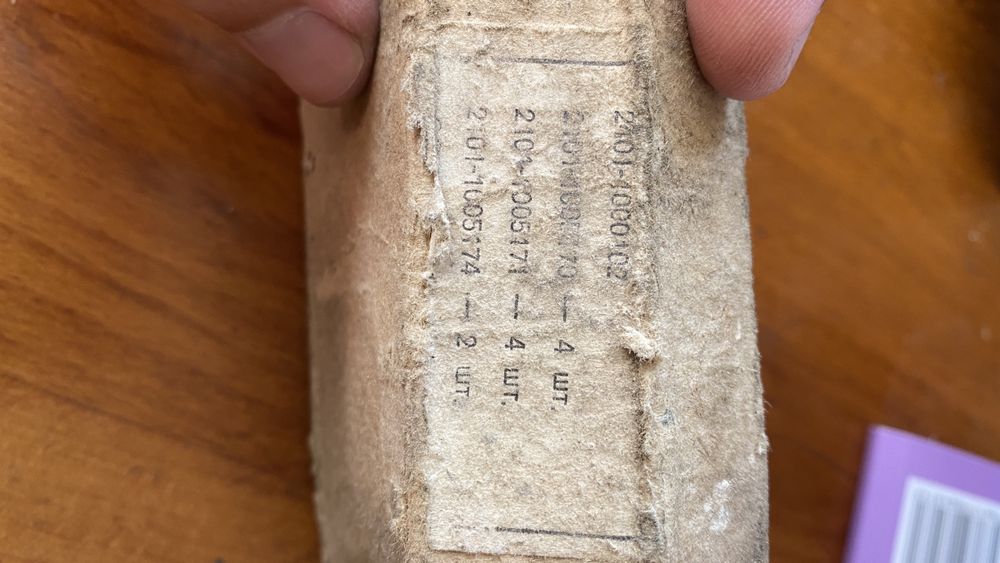 2101-1000102
2101-1005170 — 4 шт.
2101-1005171 — 4 шт.
2101-1005174 — 2 шт.